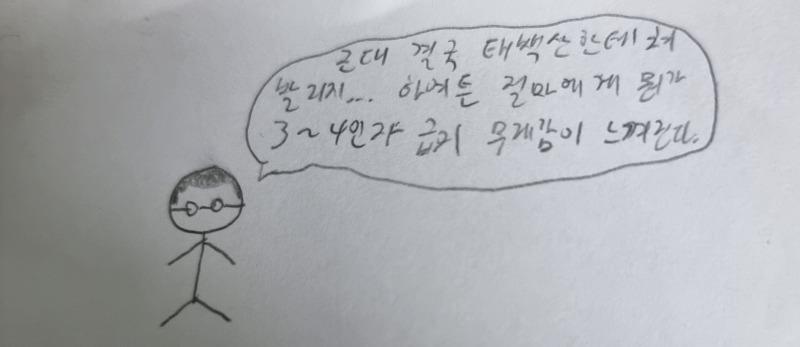 근데 결국 태백산한테 처
발리지... 하여튼 절마에게 뭔가
3~4인자 급의 무게감이 느껴진다.